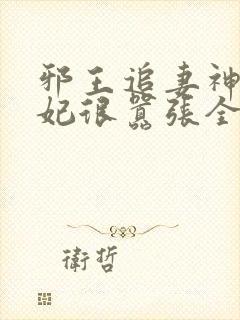 邪王追妻神
妃很囂張全
衛哲